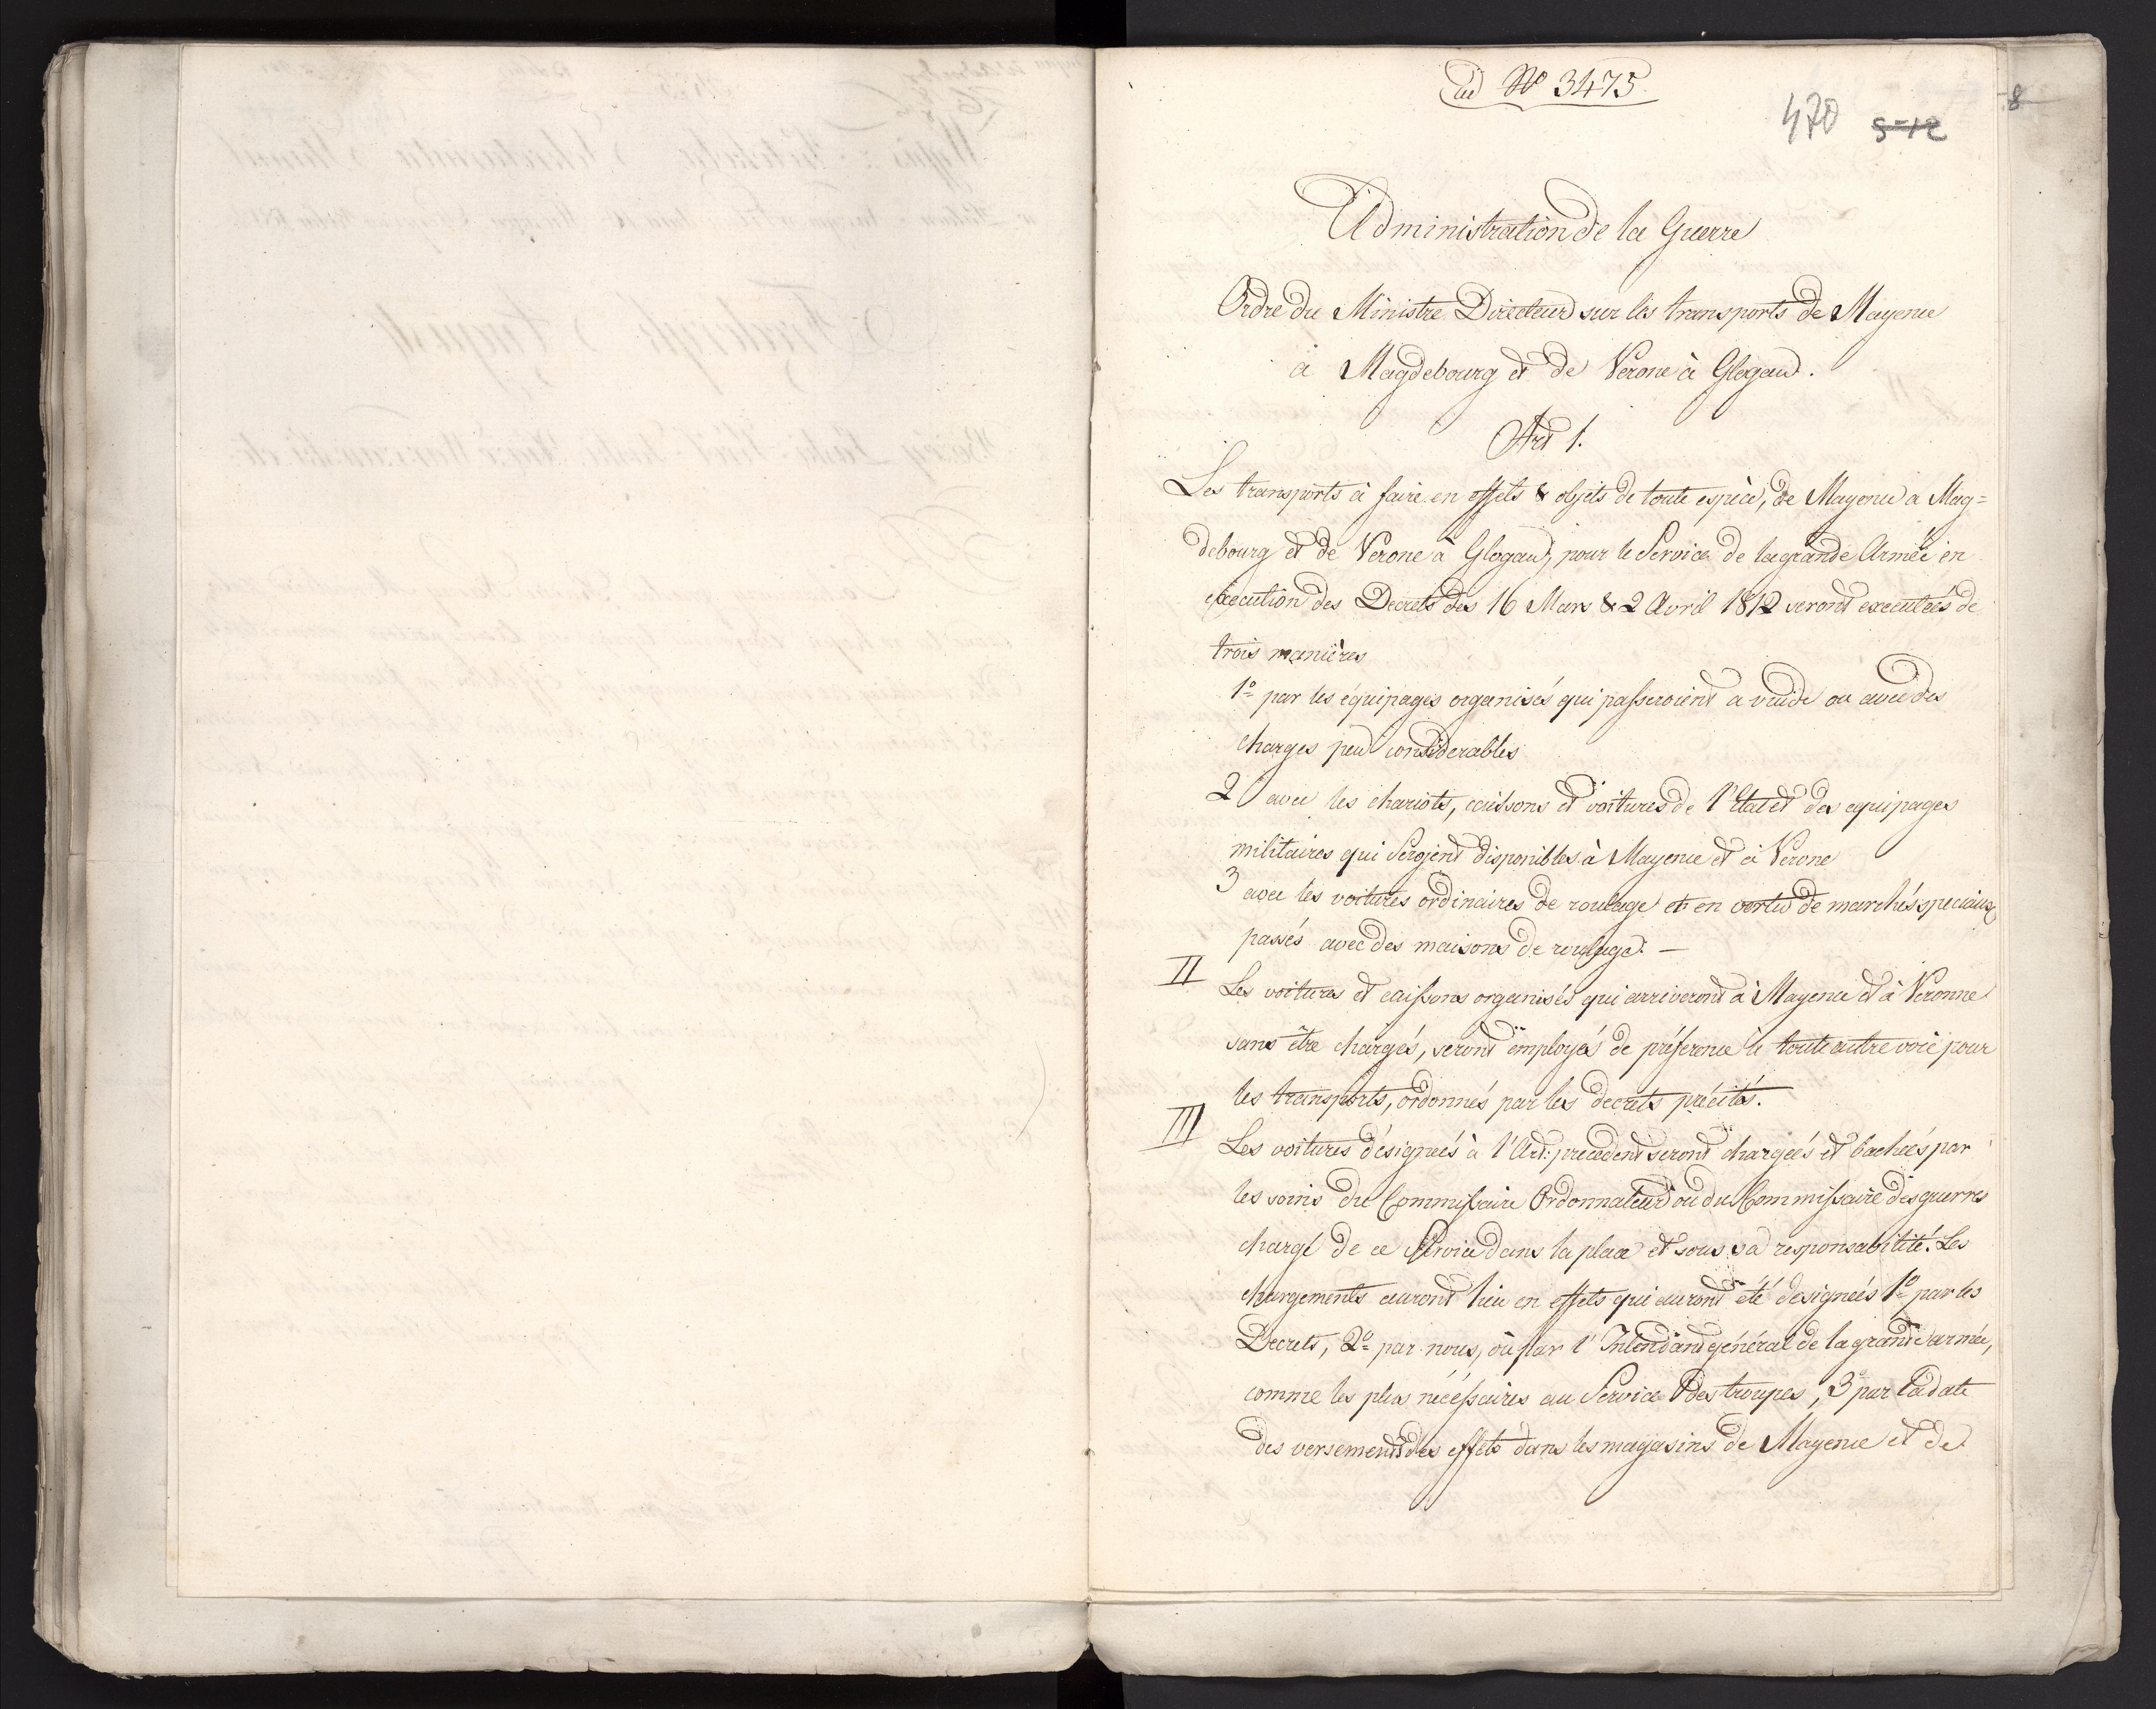 ad No 3475
470 5-12
8
Administration de la Guerre
Ordre du Ministre Directeur sur les transports de Mayence
a Magdebourg et de Verone à Glogau.
Art 1.
Les transports à faire en effets & objets de toute espèce, de Mayence a Mag=
debourg et de Verone à Glogau, pour le Service de la grande Armée en
execution des Decrets des 16 Mars & 2 Avril 1812 seront executées de
trois manières
1º par les équipages organisés qui passeroient a vuide ou avec des
charges peu considerables
2 avec les chariots, caissons et voitures de l'Etat et des equipages
militaires qui seroient disponibles à Mayence et à Verone
3 avec les voitures ordinaires de roulage et en vertu de marchés speciaux
passés avec des maisons de roulage. —
II Les voitures et caissons organisés qui arriveront à Mayence et à Veronne
sans être chargés, seront employés de préference à toute autre voie pour
les transports, ordonnés par les decrets précités.
III Les voitures désignées à l'Art: precedent seront chargées et bachées par
les soins du Commissaire Ordonnateur ou du Commissaire des guerres
chargé de ce Service dans la place et sous sa responsabilité. Les
chargements auront lieu en effets qui auront été designées 1º par les
Decrets, 2º par nous, où par l'Intendant général de la grande armée,
comme les plus nécéssaires au Service des troupes, 3º par la date
des versements des effets dans les magasins de Mayence et de